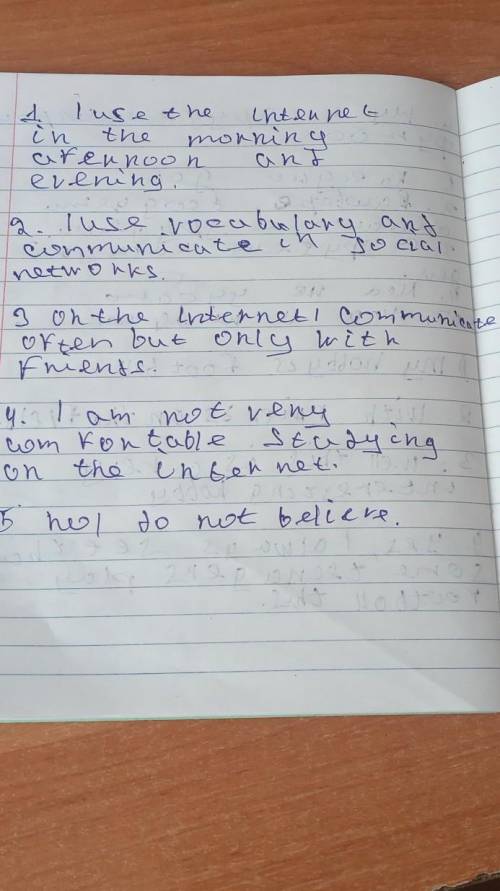 1. I use the internet
in the morning
afernoon and
evening.
2. I use vocabulary and
communicate in social
networks.
3 on the internet I communicate
often but only with
friends.
4. I am not very
comfortable studying
on the internet.
5 no I do not believe.